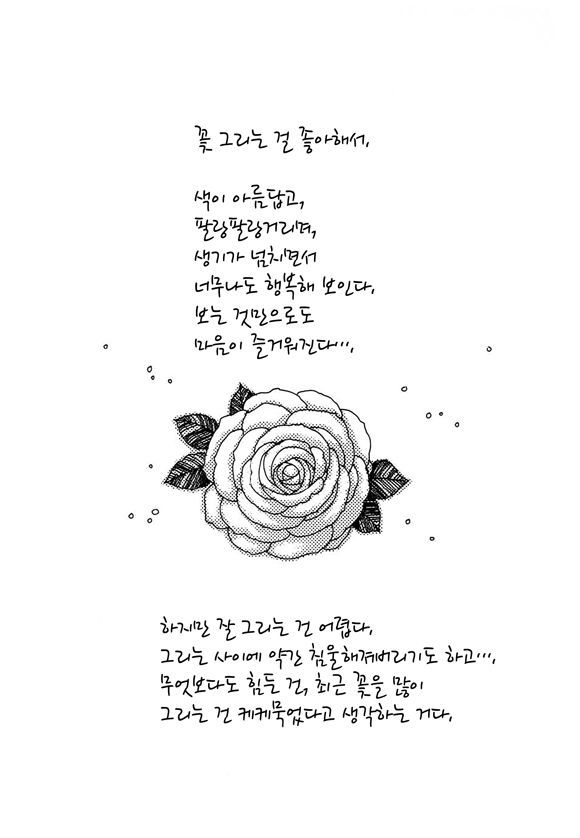 꽃 그리는 걸 좋아해서,
색이 아름답고,
팔랑팔랑거리며,
생기가 넘치면서
너무나도 행복해 보인다.
보는 것만으로도
마음이 즐거워진다….
하지만 잘 그리는 건 어렵다.
그리는 사이에 약간 침울해져버리기도 하고….
무엇보다도 힘든 건, 최근 꽃을 많이
그리는 건 케케묵었다고 생각하는 거다.